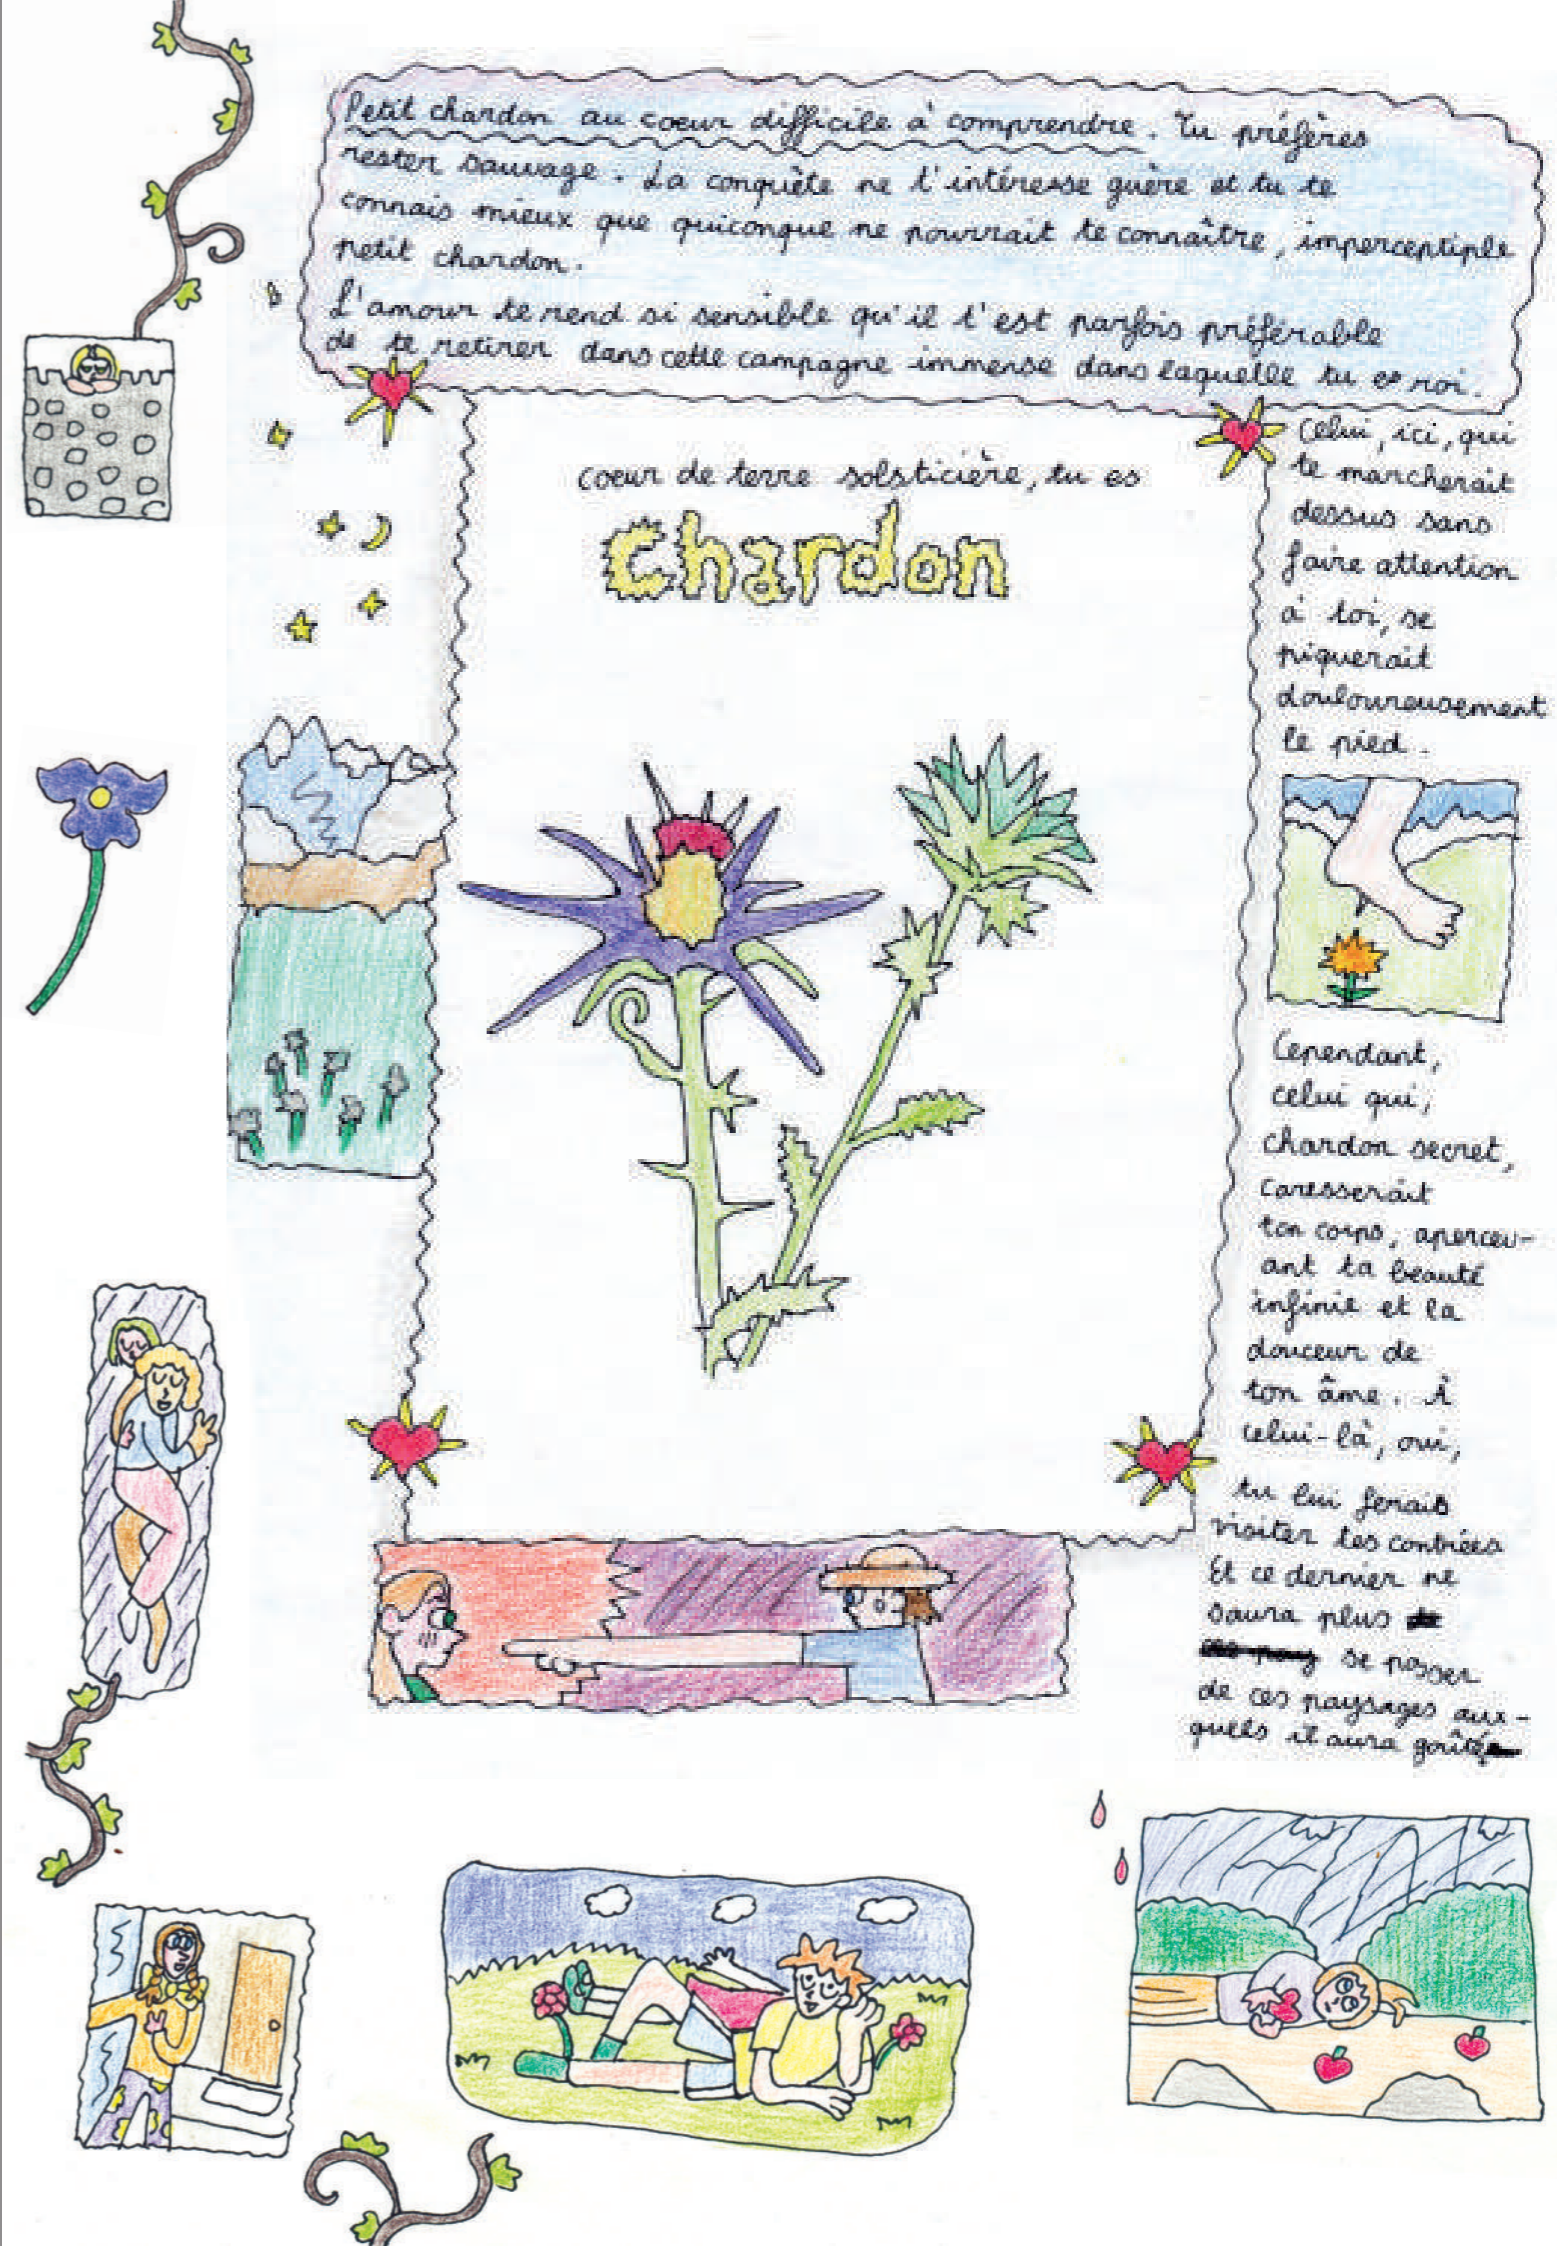 Petit chardon au coeur difficile à comprendre. Tu préfères
rester sauvage. La conquête ne t'intéresse guère et tu te
connais mieux que quiconque ne pourrait te connaître, imperceptiple
petit chardon.
L'amour te rend si sensible qu'il t'est parfois préférable
de te retirer dans cette campagne immense dans laquelle tu es roi.
coeur de terre solsticière, tu es
chardon
Celui, ici, qui
te marcherait
dessus sans
faire attention
à toi, se
piquerait
douloureusement
le pied.
Cependant,
celui qui,
chardon secret,
caresserait
ton corps, apercev-
ant ta beauté
infinie et la
douceur de
ton âme. À
celui-là, oui,
tu lui ferais
visiter tes contrées
Et ce dernier ne
saura plus
se passer
de ces paysages aux-
quels il aura goûté